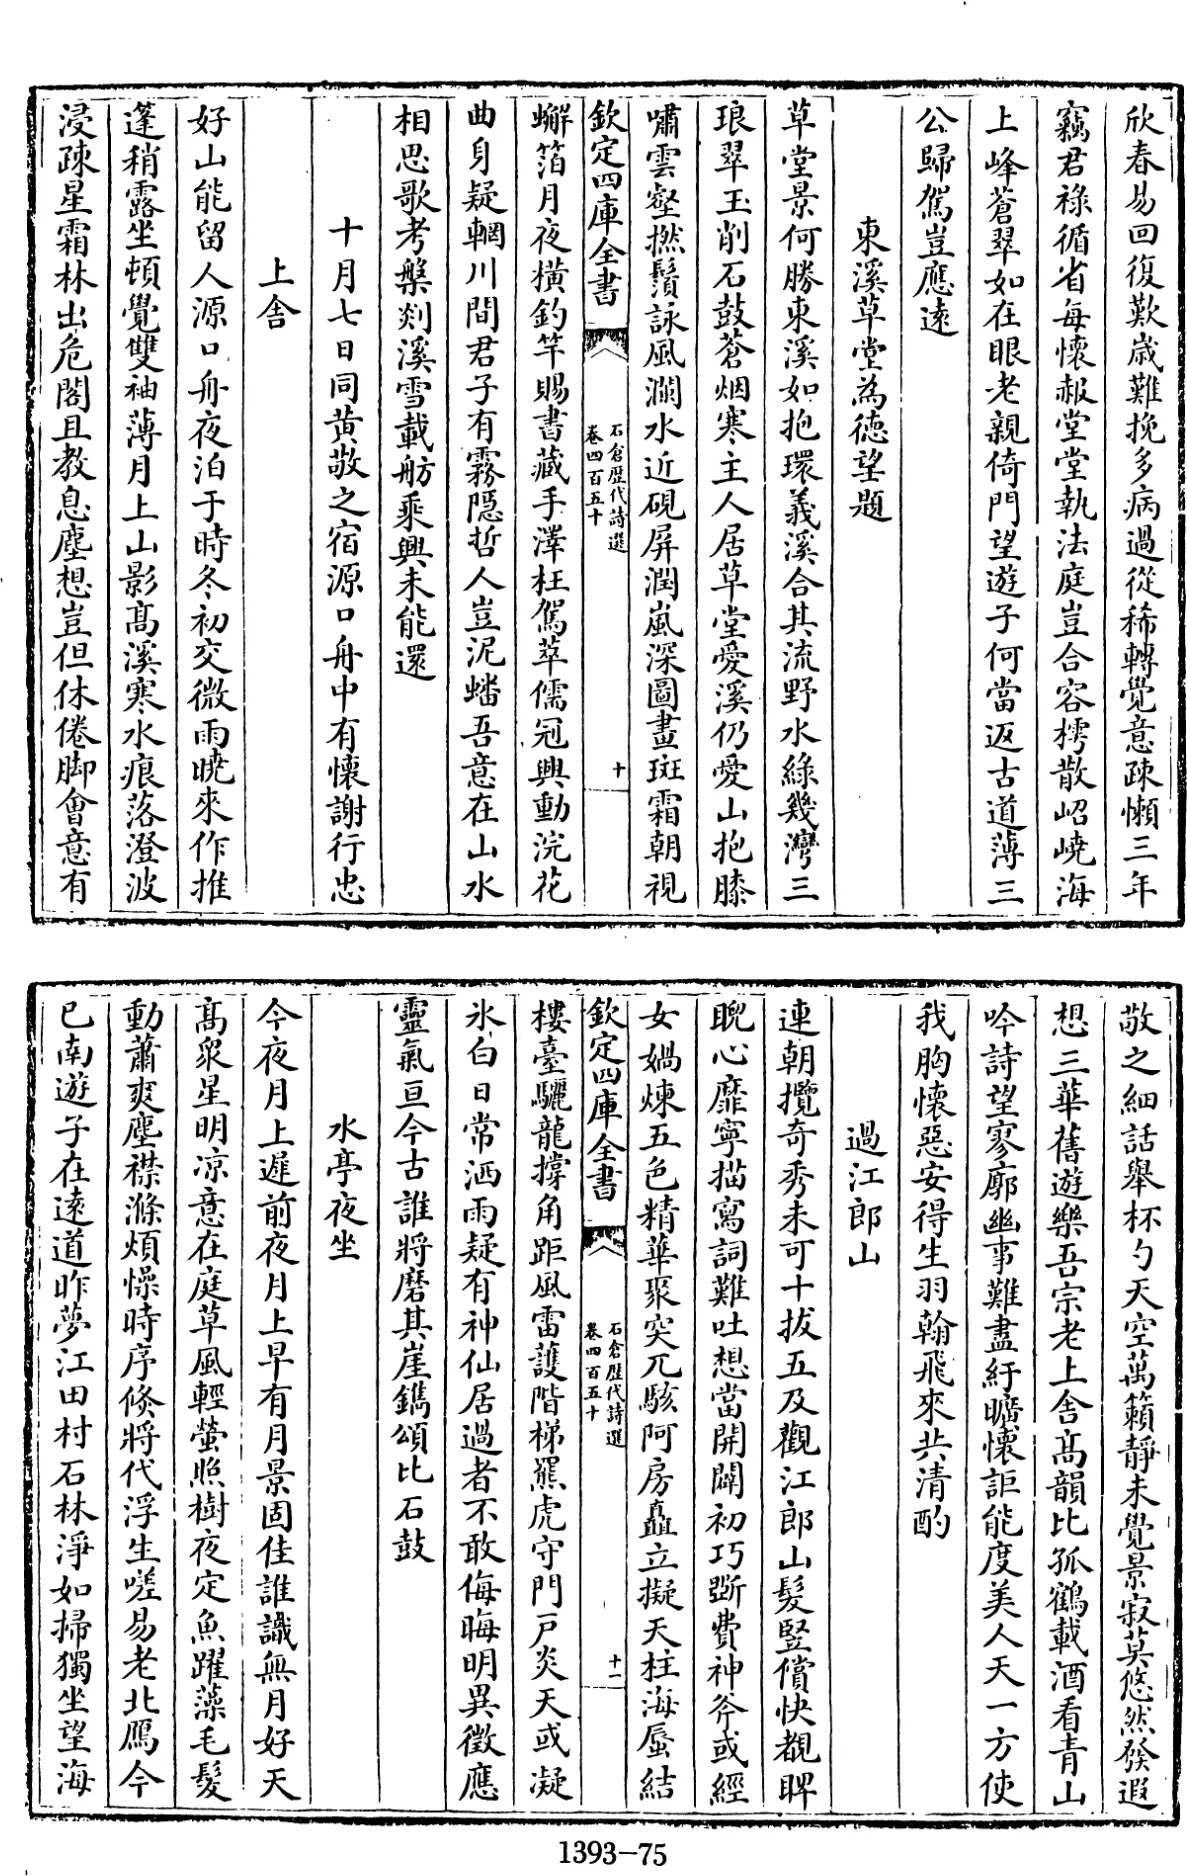 欣春易回復歎歲難挽多病過從稀轉覺意疎懶三年
竊君祿循省每懷赧堂堂執法庭豈合容樗散岧嶢海
上峰蒼翠如在眼老親倚門望遊子何當返古道薄三
公歸駕豈應遠
東溪草堂為德望題
草堂景何勝東溪如抱環義溪合其流野水綠幾灣三
琅翠玉削石鼓蒼烟寒主人居草堂愛溪仍愛山抱膝
嘯雲壑撚鬚詠風瀾水近硯屏潤嵐深圖畫斑霜朝視
欽定四庫全書
石倉歷代詩選
卷四百五十
十
蠏箔月夜橫釣竿賜書藏手澤枉駕萃儒冠興動浣花
曲身疑輞川間君子有霧隠哲人豈泥蟠吾意在山水
相思歌考槃剡溪雪載舫乘興未能還
十月七日同黄敬之宿源口舟中有懷謝行忠
上舍
好山能留人源口舟夜泊于時冬初交微雨曉來作推
蓬稍露坐頓覺雙袖薄月上山影高溪寒水痕落澄波
浸疎星霜林出危閣且教息塵想豈但休倦脚會意有
敬之細話舉杯勺天空萬籟靜未覺景寂莫悠然發遐
想三華舊遊樂吾宗老上舍高韻比孤鶴載酒看青山
吟詩望寥廓幽事難盡紆曠懷詎能度美人天一方使
我胸懷惡安得生羽翰飛來共清酌
過江郎山
連朝攬奇秀未可十拔五及觀江郎山髮竪償快覩睥
睨心靡寧描寫詞難吐想當開闢初巧斲費神斧或經
女媧煉五色精華聚突兀駭阿房矗立擬天柱海蜃結
欽定四庫全書
石倉歷代詩選
卷四百五十
十一
樓臺驪龍撐角距風雷護階梯羆虎守門戸炎天或凝
氷白日常洒雨疑有神仙居過者不敢侮晦明異徵應
靈氣亘今古誰將磨其崖鐫頌比石鼓
水亭夜坐
今夜月上遲前夜月上早有月景固佳誰識無月好天
高衆星明凉意在庭草風輕螢照樹夜定魚躍藻毛髮
動蕭爽塵襟滌煩懆時序倐將代浮生嗟易老北鴈今
已南遊子在遠道昨夢江田村石林淨如掃獨坐望海
1393-75